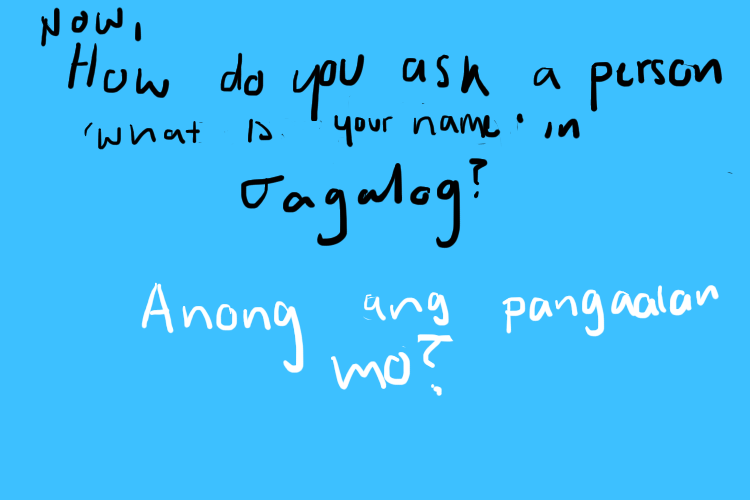 Now,
How do you ask a person
'what is your name' in
Tagalog?
Anong ang pangaalan
mo?